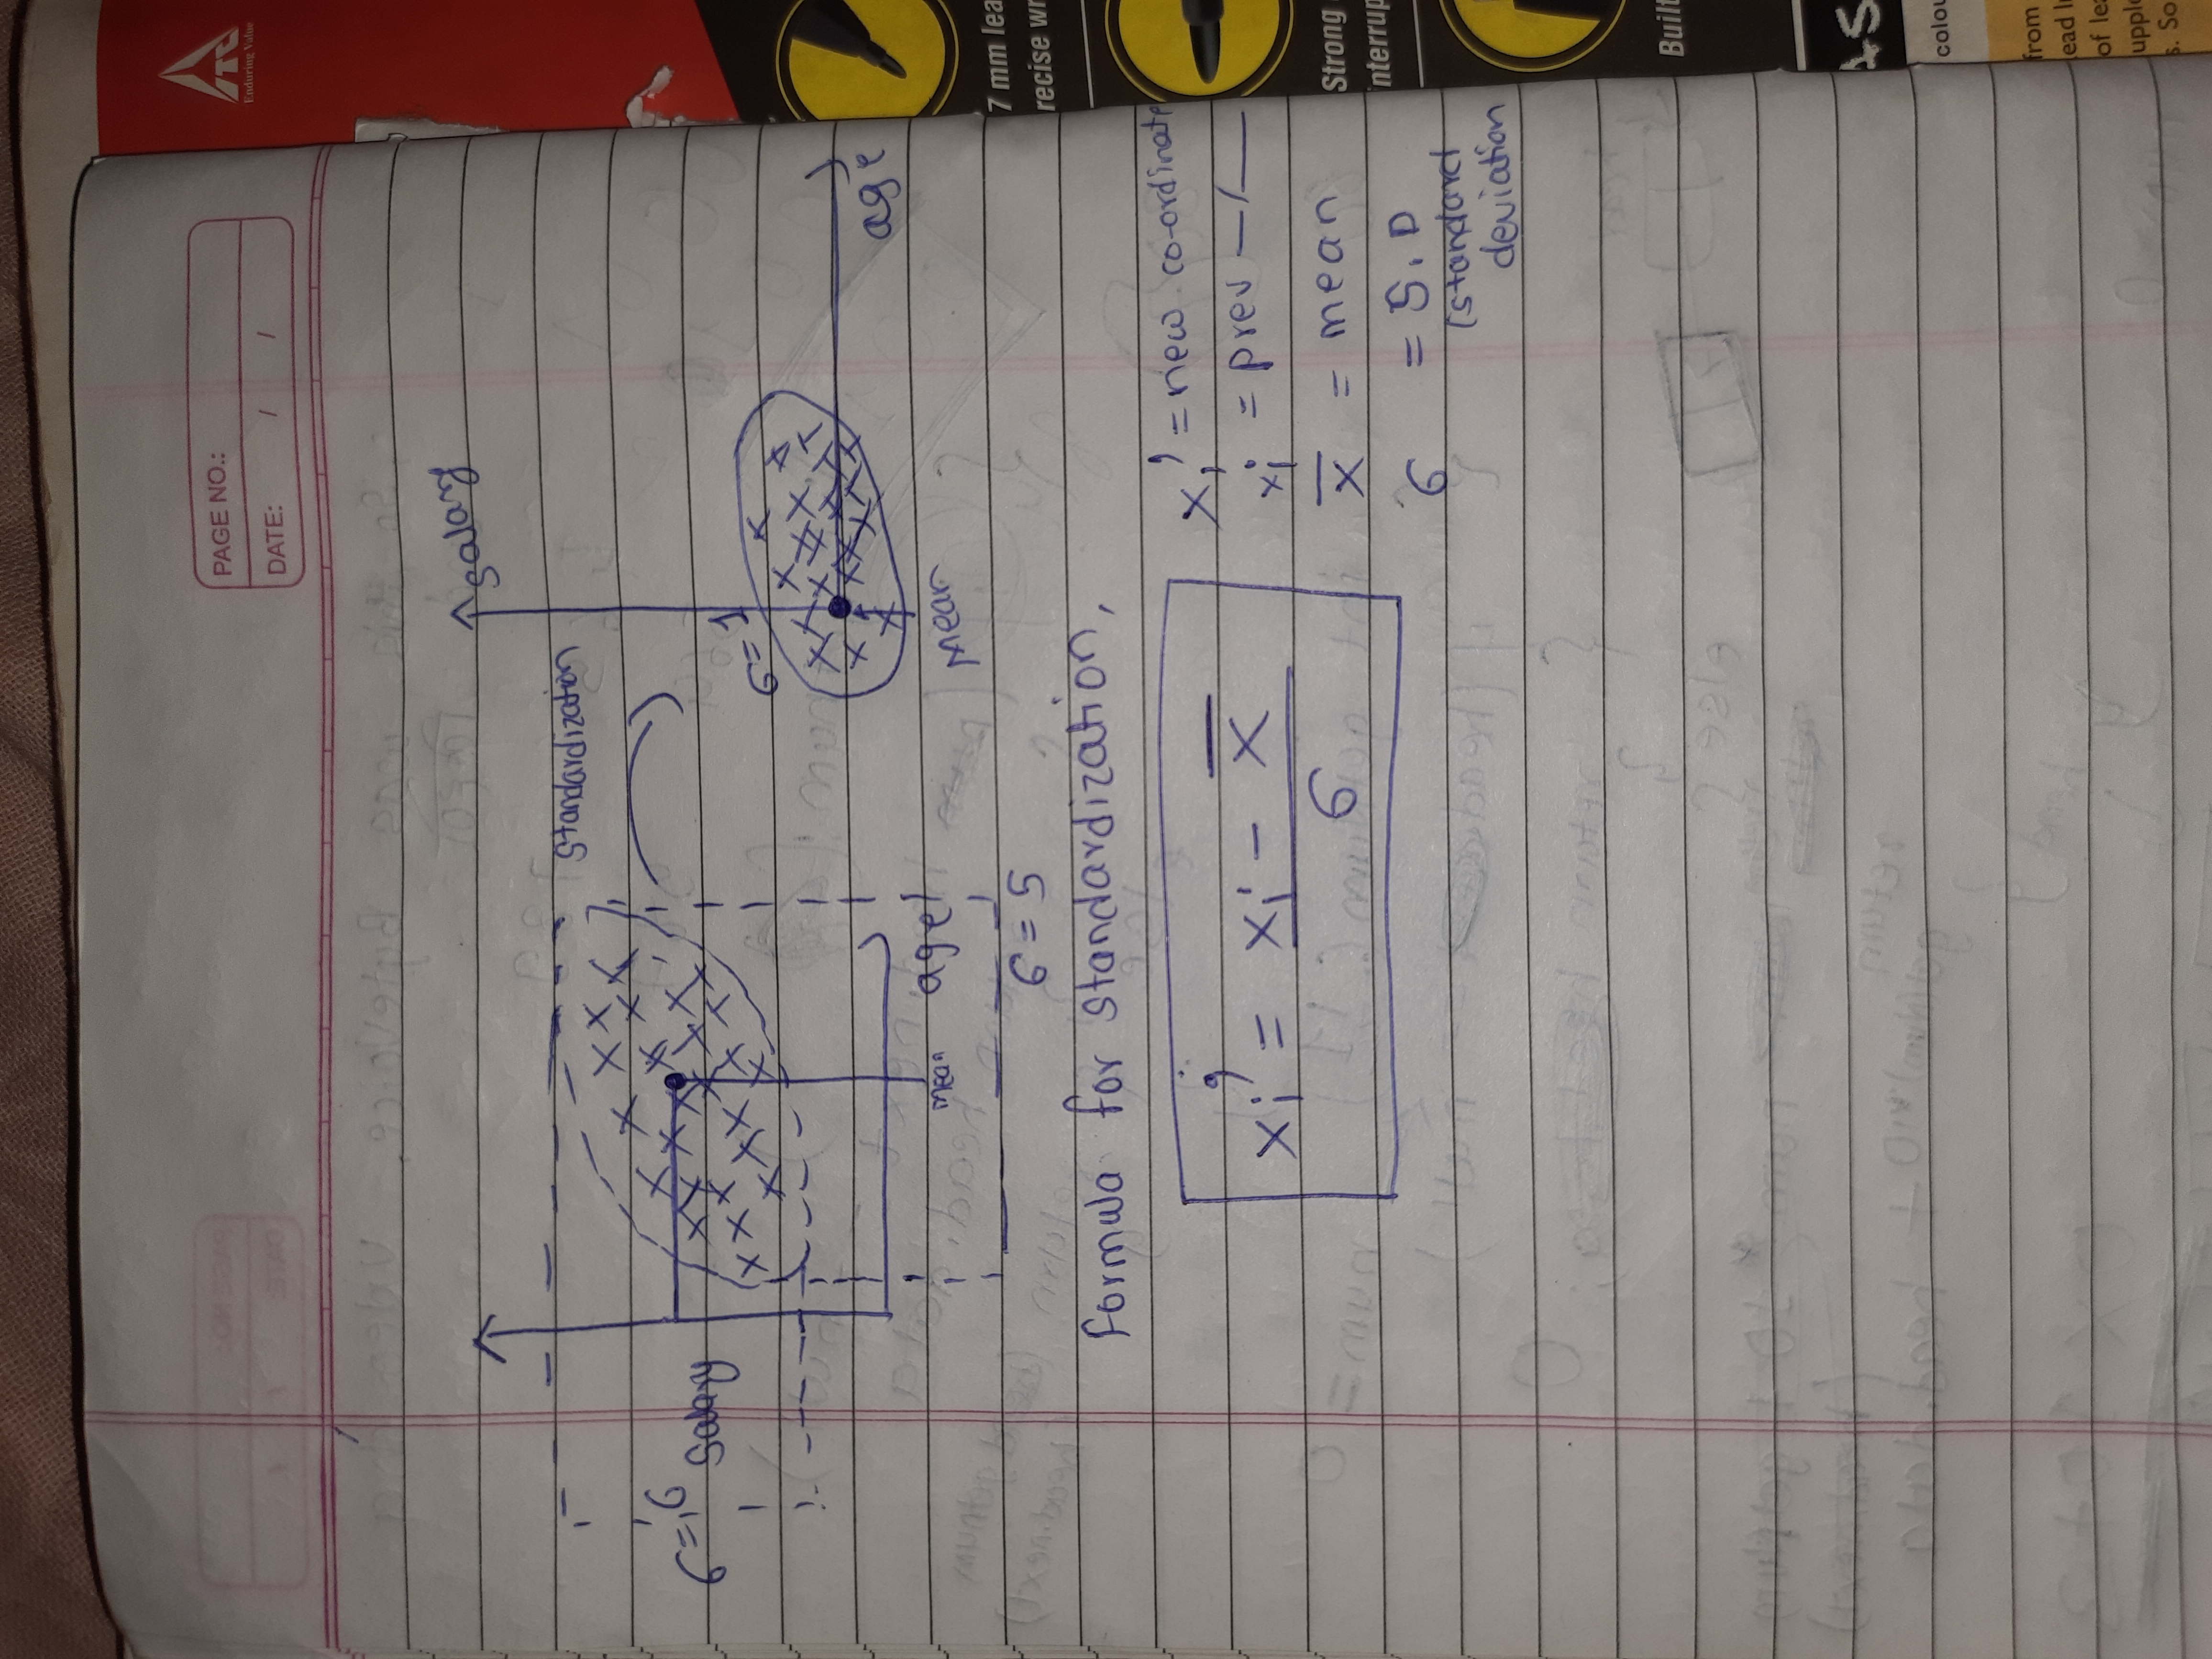 PAGE NO.:
DATE: / /
ITC
Enduring Value
Salary
Standardization
σ = 6
Salary
σ = 1
age
mean
age
Mean
σ = 5
Formula for standardization,
xi' = new co-ordinate
xi' = xi - x̄
σ
xi = prev —/—
x̄ = mean
σ = S.D
(standard
deviation
7 mm lea
recise wr
Strong
nterrup
Built
colou
from
ead l
of lea
upple
s. So